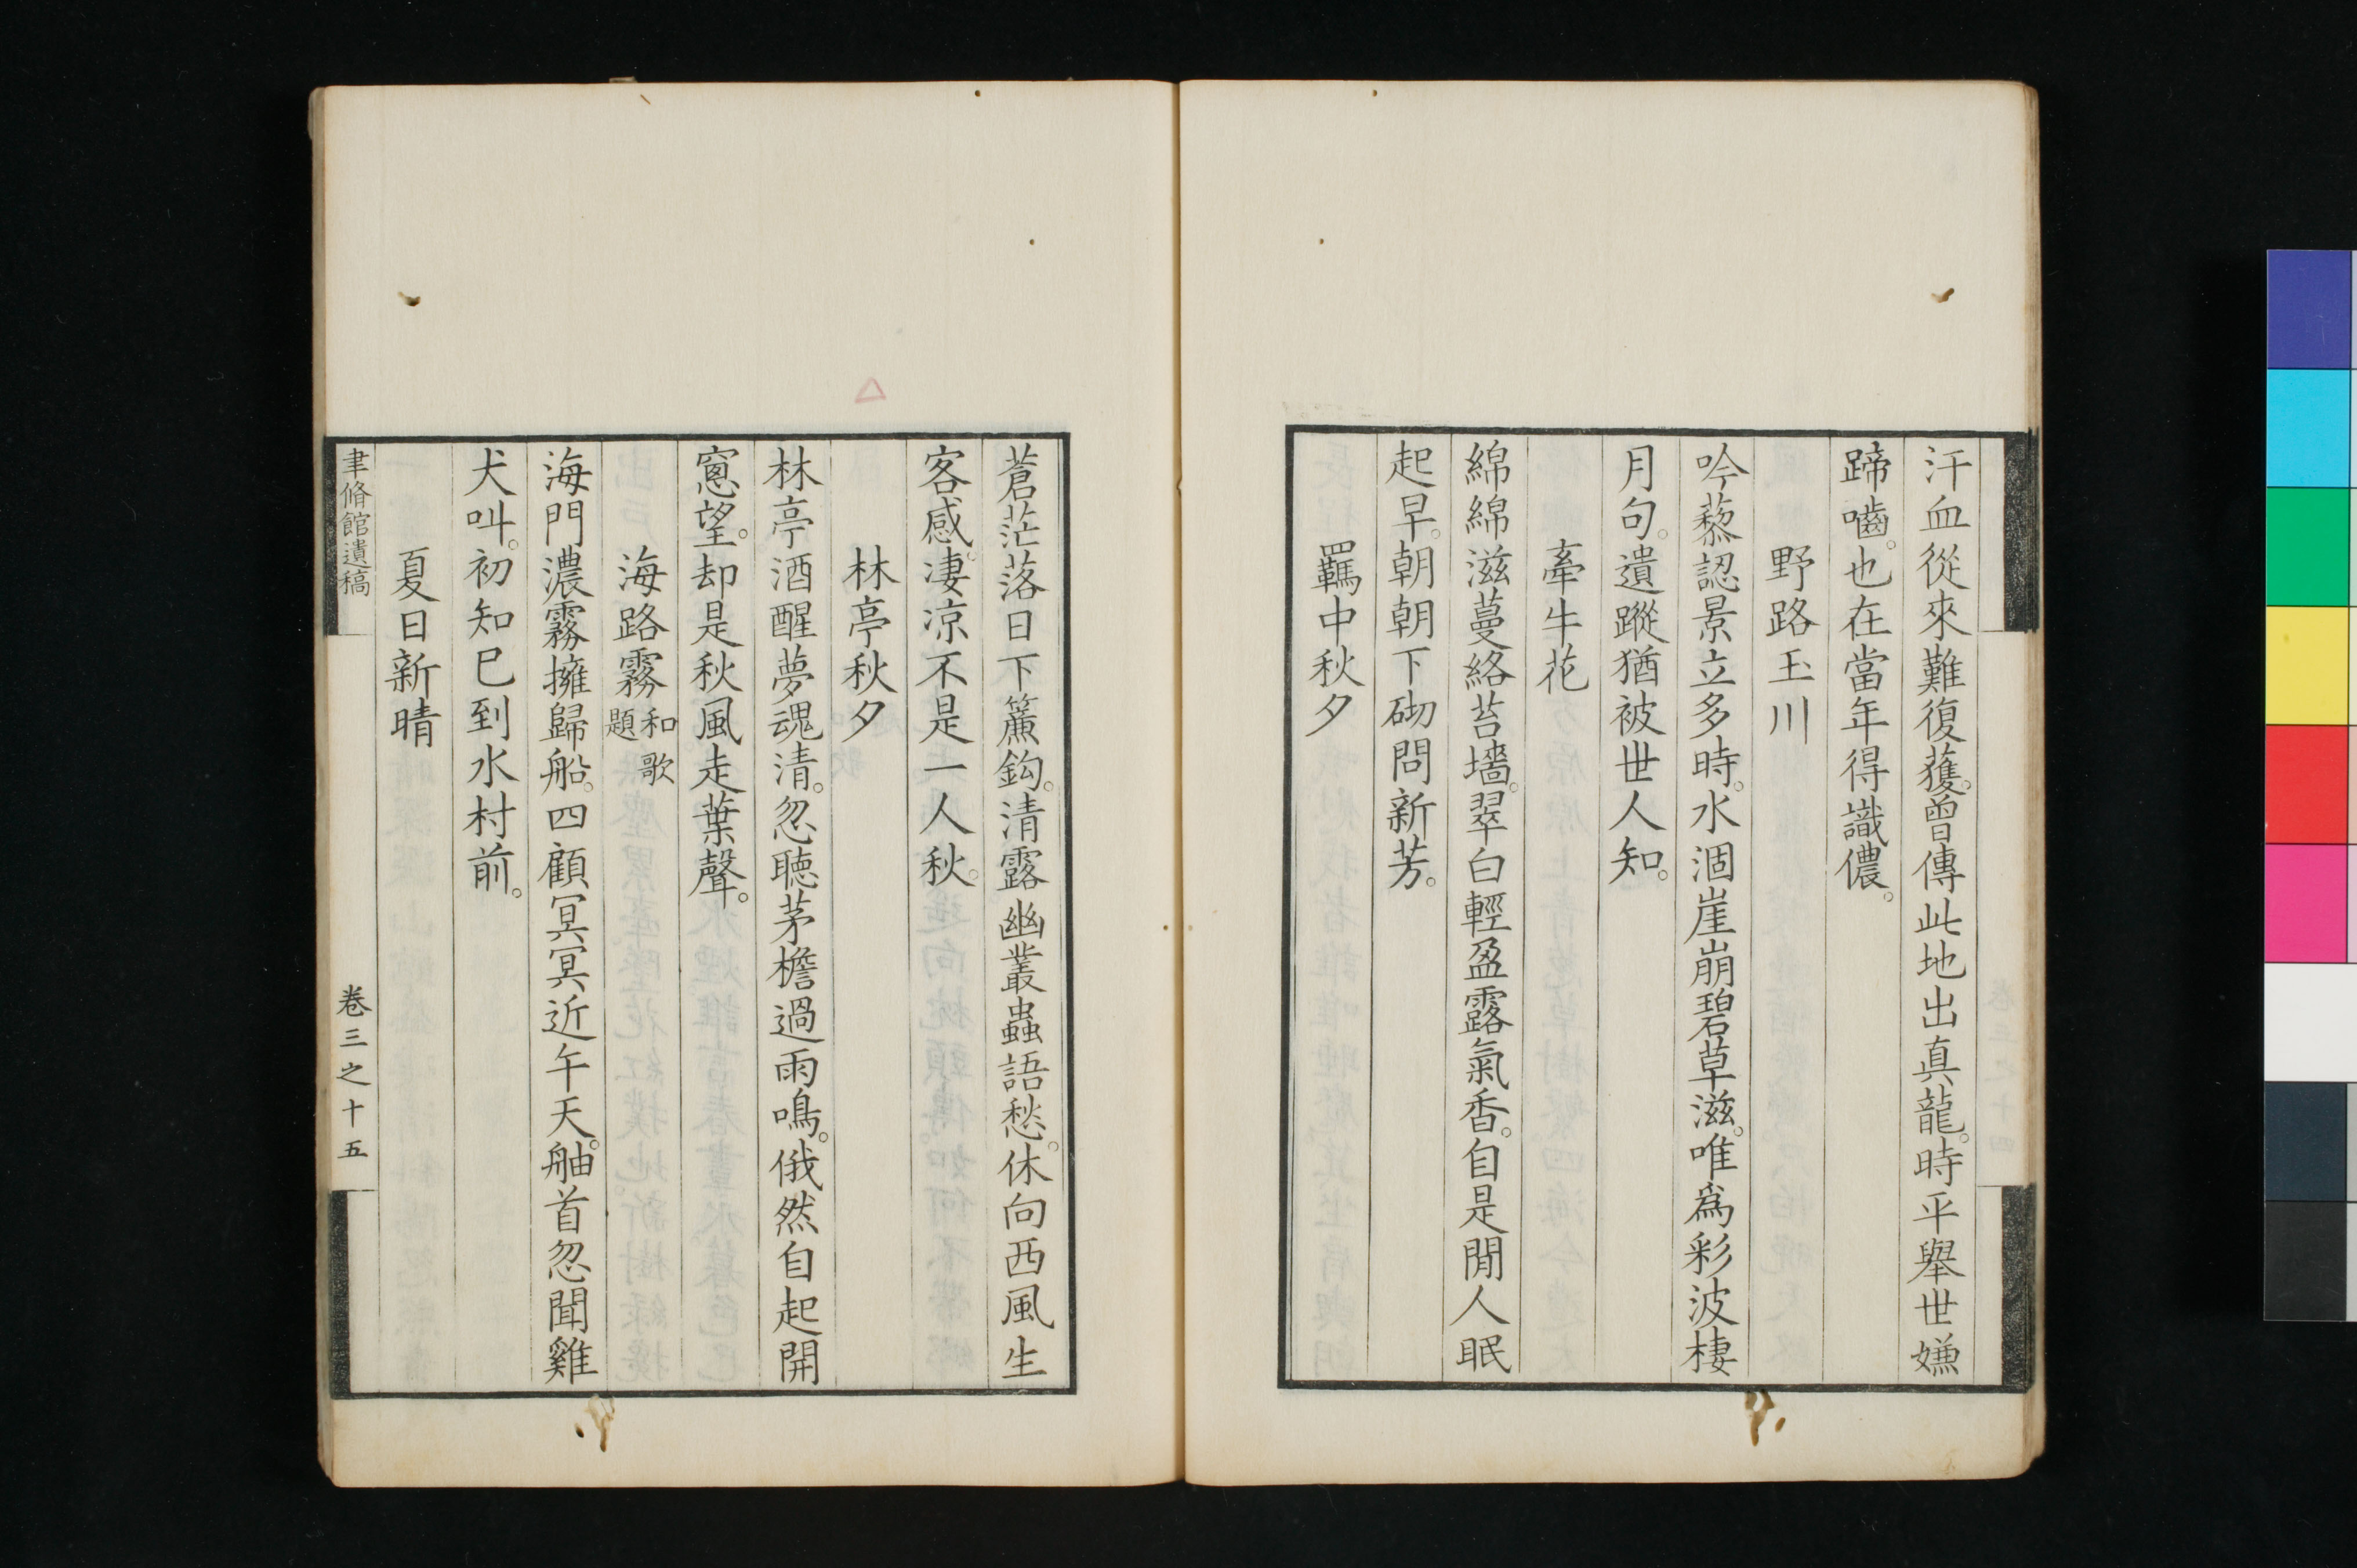 汗血從來難復獲。曾傳此地出真龍。時平舉世嫌
蹄嚙。也在當年得識儂。
野路玉川
吟藜認景立多時。水涸崖崩碧草滋。唯爲彩波棲
月句。遺蹤猶被世人知。
牽牛花
綿綿滋蔓絡苔墻。翠白輕盈露氣香。自是閒人眠
起早。朝朝下砌問新芳。
羈中秋夕
蒼茫落日下簾鈎。清露幽叢蟲語愁。休向西風生
客感。凄凉不是一人秋。
林亭秋夕
林亭酒醒夢魂清。忽聴茅檐過雨鳴。俄然自起開
窓望。却是秋風走葉聲。
海路霧和歌題
海門濃霧擁歸船。四顧冥冥近午天。舳首忽聞雞
犬叫。初知已到水村前。
夏日新晴
聿脩館遺稿
卷三之十五